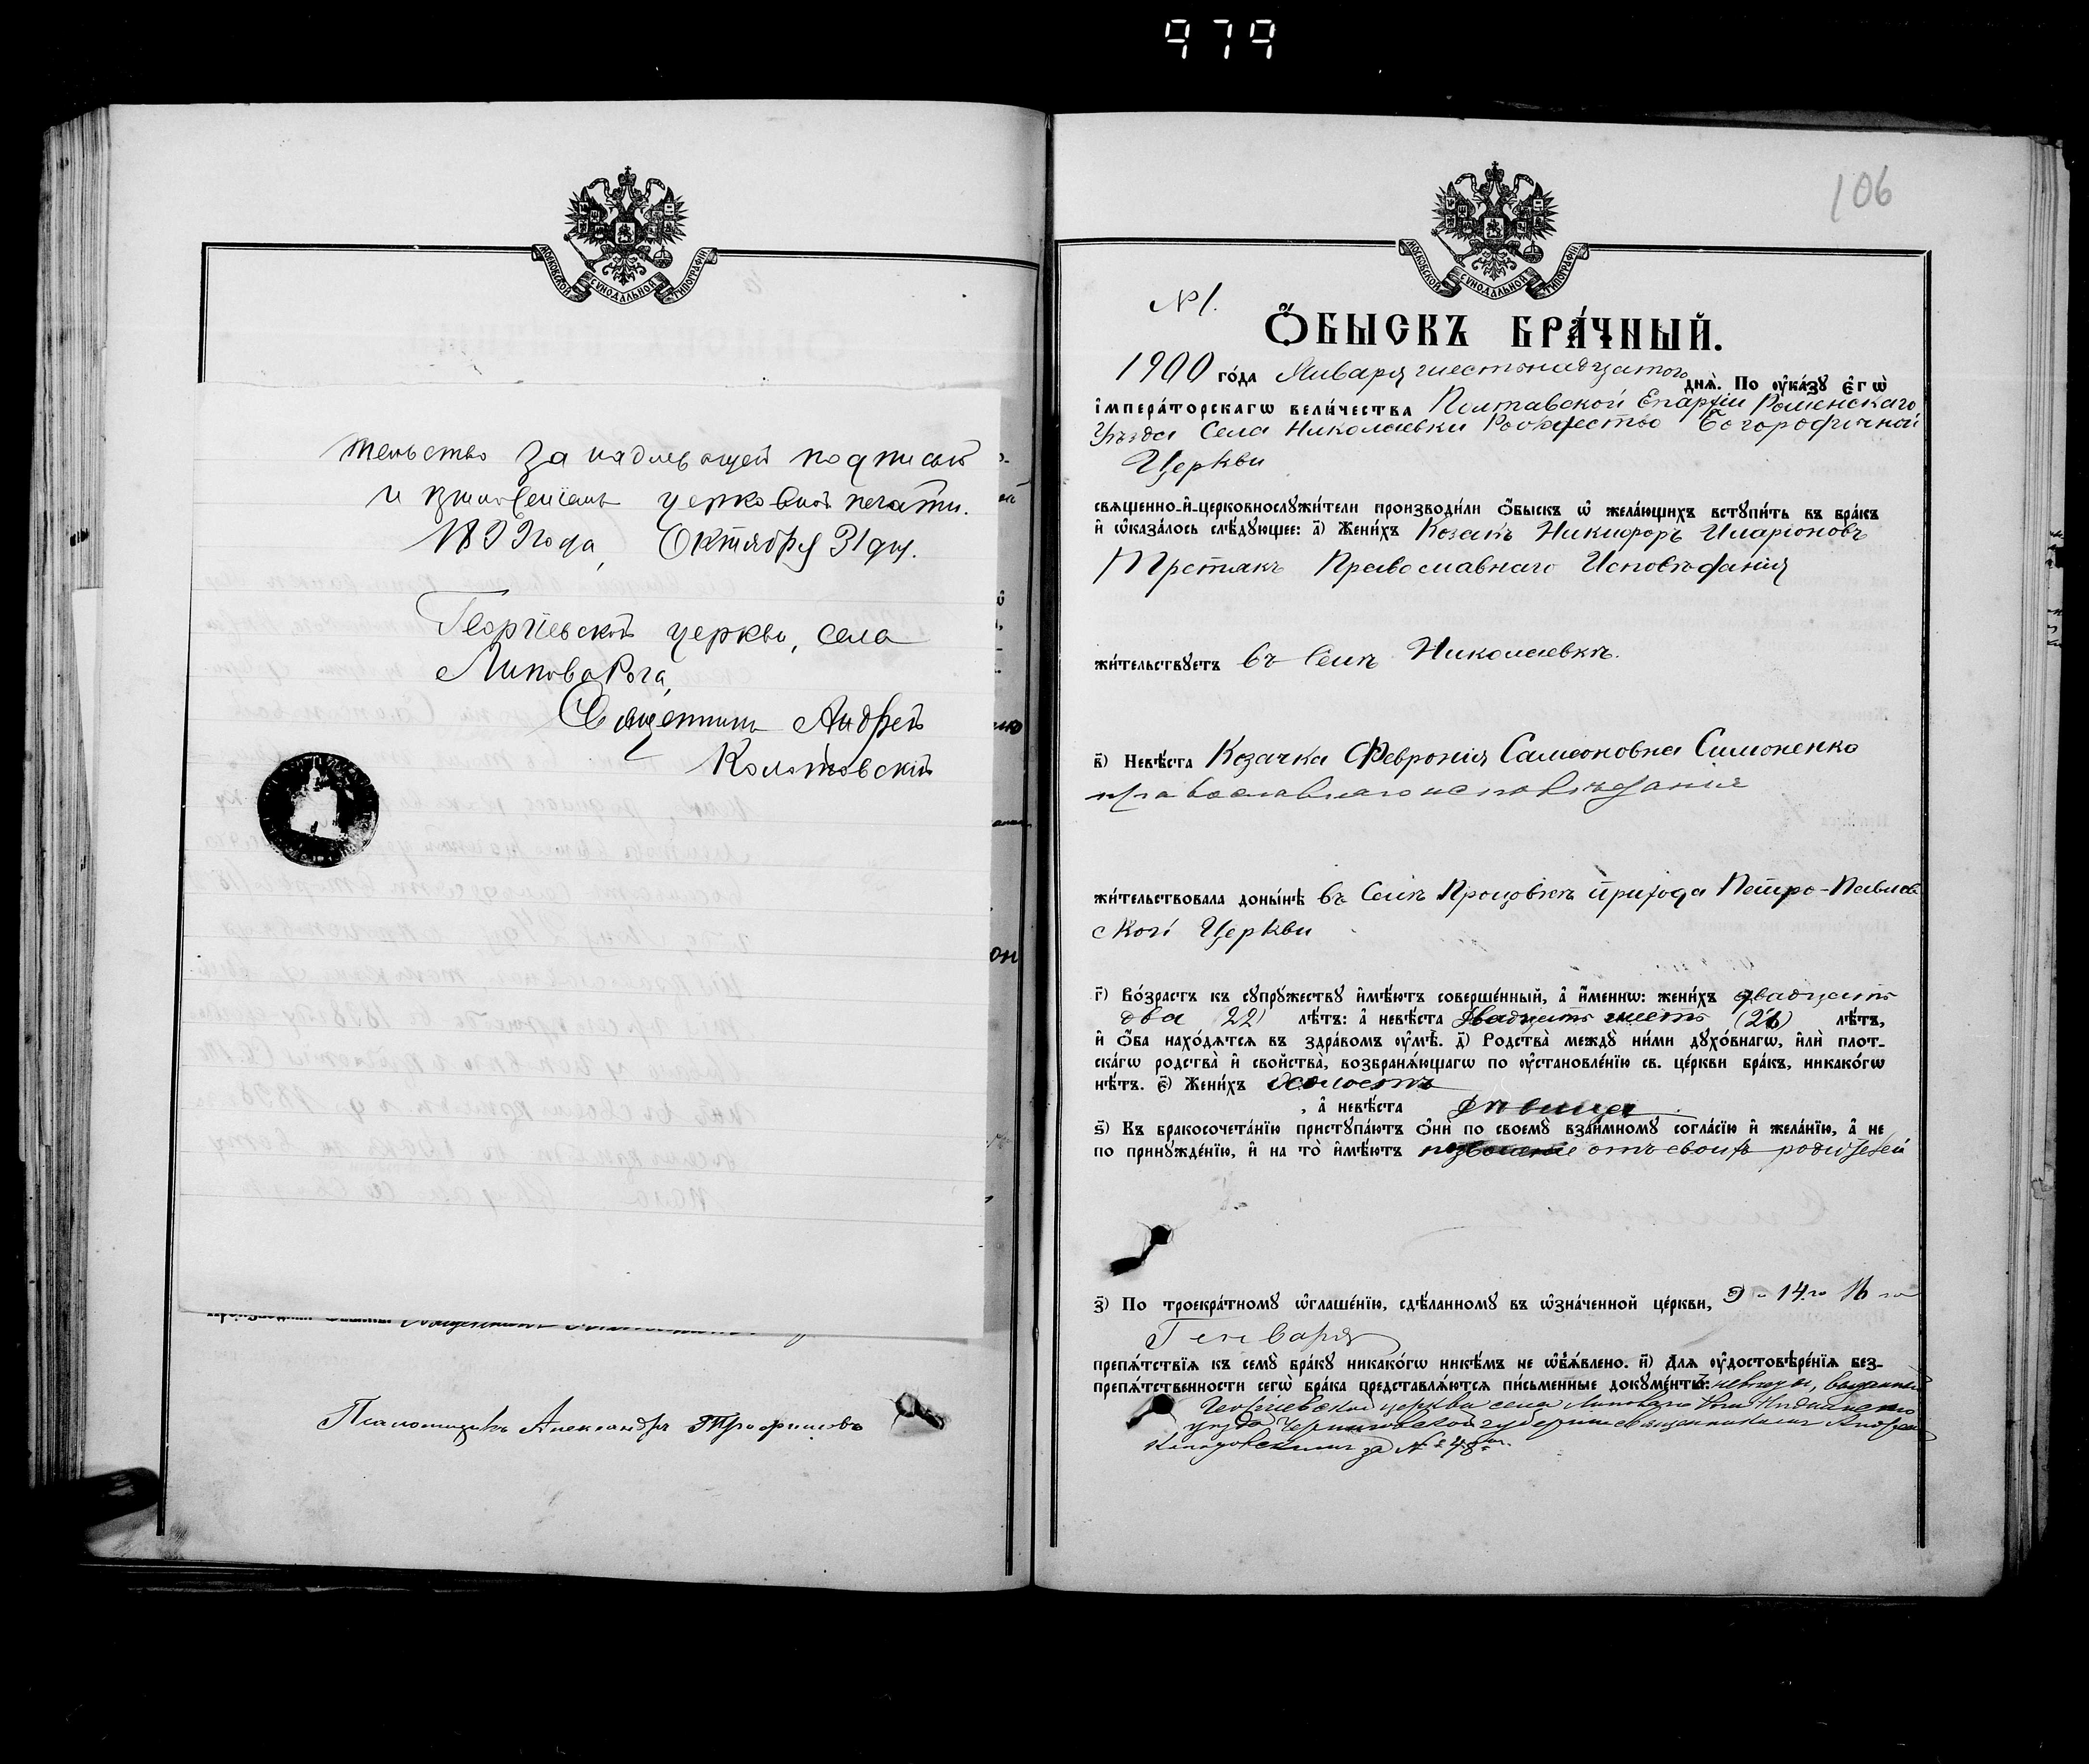 979
МОСКОВСКОЙ СѴНОДАЛЬНОЙ ТИПОГРАФІИ
тельство за надлежащей подписью
и приложеніемъ церковной печати.
1899 года, Октября 31 дня.
Георгіевской церкви, села
Липова Рога,
Священникъ Андрей
Псаломщикъ Александръ Трофимовъ
106
МОСКОВСКОЙ СѴНОДАЛЬНОЙ ТИПОГРАФІИ
№ 1.
Ѻ҆БЫСКЪ БРА́ЧНЫЙ.
1900 го́да Января шестьнадцатого дня̀. По ᲂу҆ка́зꙋ є҆гѡ̀
і҆мпера́торскагѡ вели́чества Полтавской Епархіи Роменскаго
Уѣзда Села Николаевки Рождество Богородичной
Церкви
свѧщенно-и҆-церковнослꙋжи́тели производи́ли ѻ҆́быскъ ѡ҆ жела́ющихъ встꙋпи́ть въ бра́къ
и҆ ѡ҆каза́лось слѣ́дꙋющее: а҃) Жени́хъ Козакъ Никифоръ Иларіоновъ
Третякъ Православнаго Исповѣданія
жи́тельствꙋетъ въ Селѣ Николаевкѣ.
в҃) Невѣ́ста Козачка Феврония Самсоновна Симоненко
православнаго исповѣданія
жи́тельствовала донынѣ въ Селѣ Процовкѣ прихода Петро-Павлов
ской Церкви
г҃) Во́зрастъ къ сꙋпрꙋ́жествꙋ и҆мѣ́ютъ соверше́нный, а҆ и҆́меннѡ: жени́хъ двадцать
два 22) лѣ́тъ: а҆ невѣ́ста двадцать шесть (26) лѣ́тъ,
и҆ ѻ҆́ба нахо́дѧтсѧ въ здра́вомъ ᲂу҆мѣ̀. д҃) Родства̀ междꙋ̀ ни́ми дꙋхо́внагѡ, и҆лѝ плот-
ска́гѡ родства̀ и҆ сво́йства̀, возбранѧ́ющагѡ по ᲂу҆становле́нїю св. це́ркви бра́къ, никако́гѡ
нѣ́тъ. є҃) Жени́хъ холостъ
, а҆ невѣ́ста дѣвица
ѕ҃) Къ бракосочета́нїю пристꙋпа́ютъ ѻ҆нѝ по своемꙋ̀ взаи́мномꙋ согла́сїю и҆ жела́нїю, а҆ не
по принꙋжде́нїю, и҆ на то̀ и҆мѣ́ютъ позволеніе отъ своихъ родителей
з҃) По троекра́тномꙋ ѡ҆глаше́нїю, сдѣ́ланномꙋ въ ѡ҆зна́ченной це́ркви, 9го 14го 16го
Генваря
препѧ́тствїѧ къ семꙋ̀ бра́кꙋ никако́гѡ никѣ́мъ не ѡ҆б̾ѧ́влено. и҃) Для ᲂу҆достовѣре́нїѧ без-
препѧ́тственности сегѡ̀ бра́ка представлѧ́ютсѧ пи́сьменные докꙋме́нты: невѣсты, выданный
Георгіевской церкви села Липоваго Рога Нѣжинскаго
уѣзда Черниговской губерніи священникомъ Андреемъ
за № 248